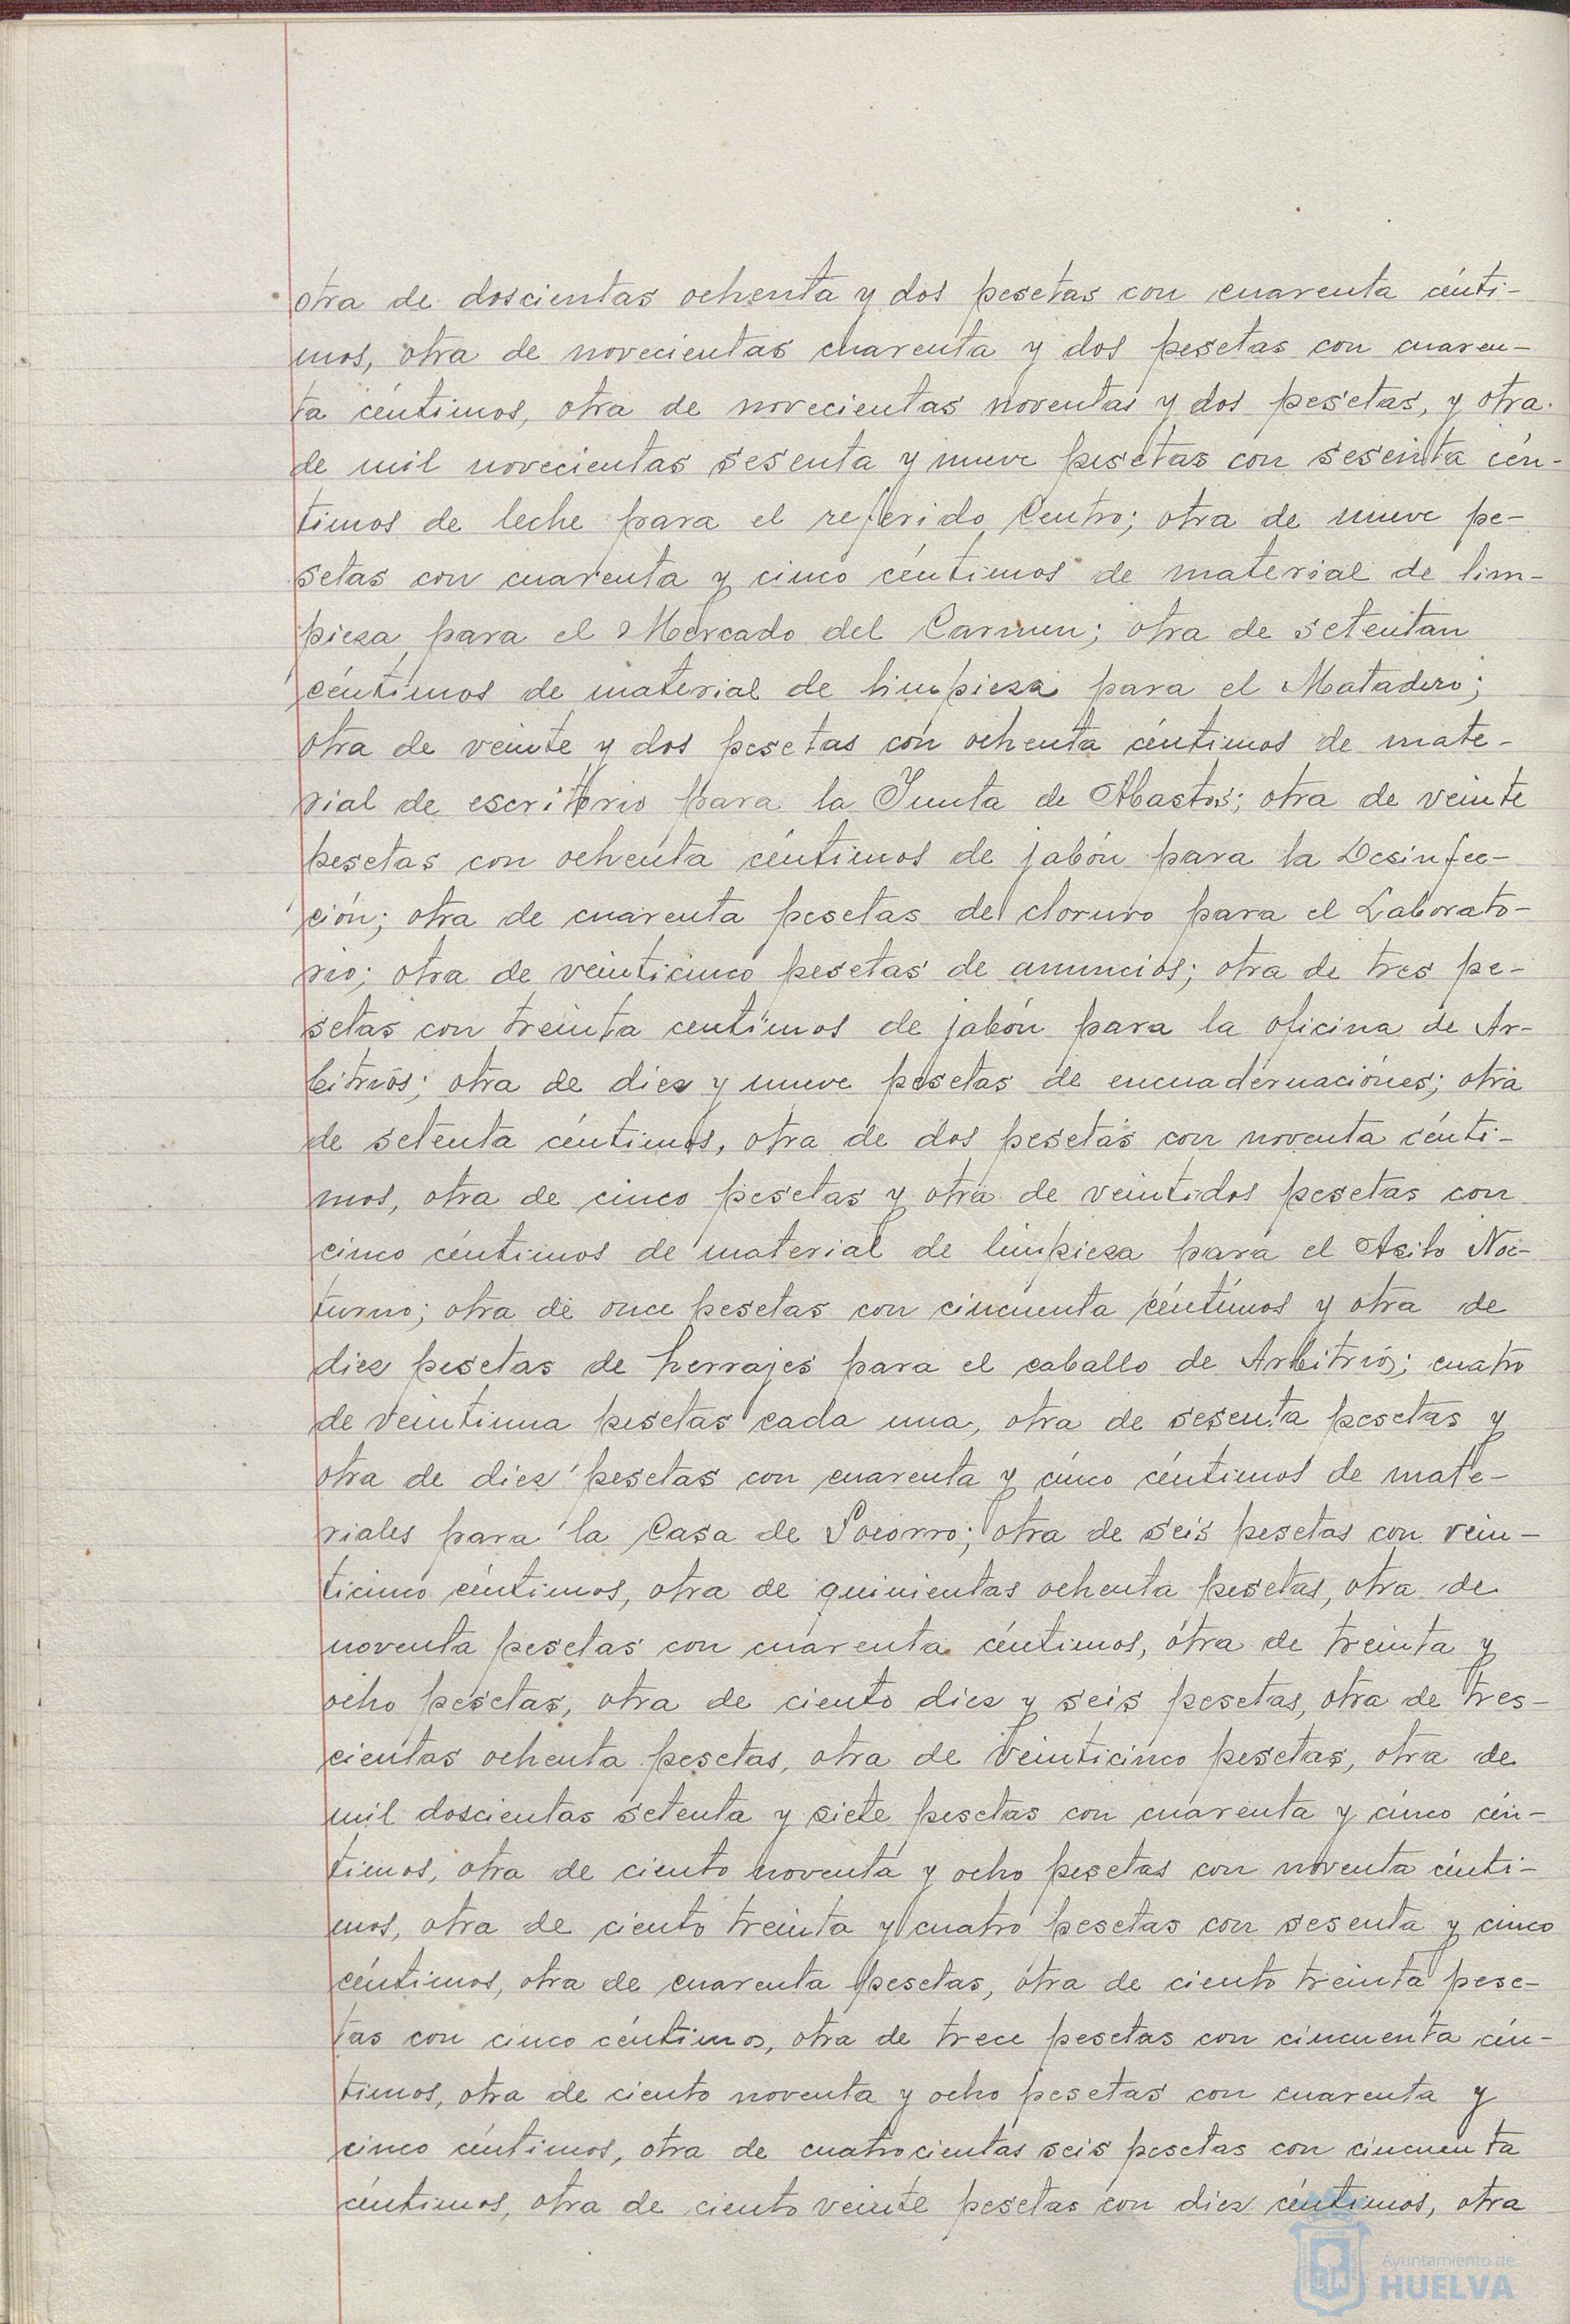 otra de doscientas ochenta y dos pesetas con cuarenta cénti-
mos, otra de novecientas cuarenta y dos pesetas con cuaren-
ta céntimos, otra de novecientas noventa y dos pesetas, y otra
de mil novecientas sesenta y nueve pesetas con sesenta cén-
timos de leche para el referido Centro; otra de nueve pe-
setas con cuarenta y cinco céntimos de material de lim-
pieza para el Mercado del Carmen; otra de setentan
céntimos de material de limpieza para el Matadero;
otra de veinte y dos pesetas con ochenta céntimos de mate-
rial de escritorio para la Junta de Abastos; otra de veinte
pesetas con ochenta céntimos de jabón para la Desinfec-
ción; otra de cuarenta pesetas de cloruro para el Laborato-
rio; otra de veinticinco pesetas de anuncios; otra de tres pe-
setas con treinta centimos de jabón para la oficina de Ar-
bitrios; otra de diez y nueve pesetas de encuadernaciones; otra
de setenta céntimos, otra de dos pesetas con noventa cénti-
mos, otra de cinco pesetas y otra de veintidos pesetas con
cinco céntimos de material de limpieza para el Asilo Noc-
turno; otra de once pesetas con cincuenta céntimos y otra de
diez pesetas de herrajes para el caballo de Arbitrios; cuatro
de veintiuna pesetas cada una, otra de sesenta pesetas y
otra de diez pesetas con cuarenta y cinco céntimos de mate-
riales para la Casa de Socorro; otra de seis pesetas con vein-
ticinco céntimos, otra de quinientas ochenta pesetas, otra de
noventa pesetas con cuarenta céntimos, otra de treinta y
ocho pesetas, otra de ciento diez y seis pesetas, otra de tres-
cientas ochenta pesetas, otra de veinticinco pesetas, otra de
mil doscientas setenta y siete pesetas con cuarenta y cinco cén-
timos, otra de ciento noventa y ocho pesetas con noventa cénti-
mos, otra de ciento treinta y cuatro pesetas con sesenta y cinco
céntimos, otra de cuarenta pesetas, otra de ciento treinta pese-
tas con cinco céntimos, otra de trece pesetas con cincuenta cén-
timos, otra de ciento noventa y ocho pesetas con cuarenta y
cinco céntimos, otra de cuatrocientas seis pesetas con cincuenta
céntimos, otra de ciento veinte pesetas con diez céntimos, otra
Ayuntamiento de
HUELVA